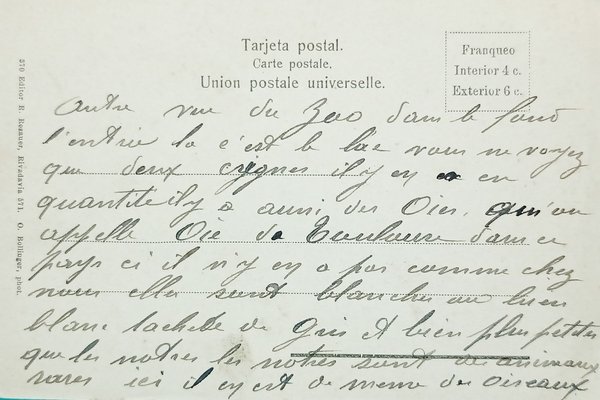 Tarjeta postal.
Carte postale.
Union postale universelle.
Franqueo
Interior 4 c.
Exterior 6 c.
570 Editor R. Rosauer, Rivadavia 571. G. Bollinger, phot.
autre vue du Zoo dans le fond
l'entrée la c'est le lac vous ne voyez
que deux cygnes il y en a en
quantité il y a aussi des Oies, qu'on
appelle Oie de Toulouse dans ce
pays ci il n'y en a pas comme chez
nous elles sont blanches ou bien
blanc tachetté de gris et bien plus petites
que les notres les notres sont des animaux
rares ici il en est de meme des oiseaux